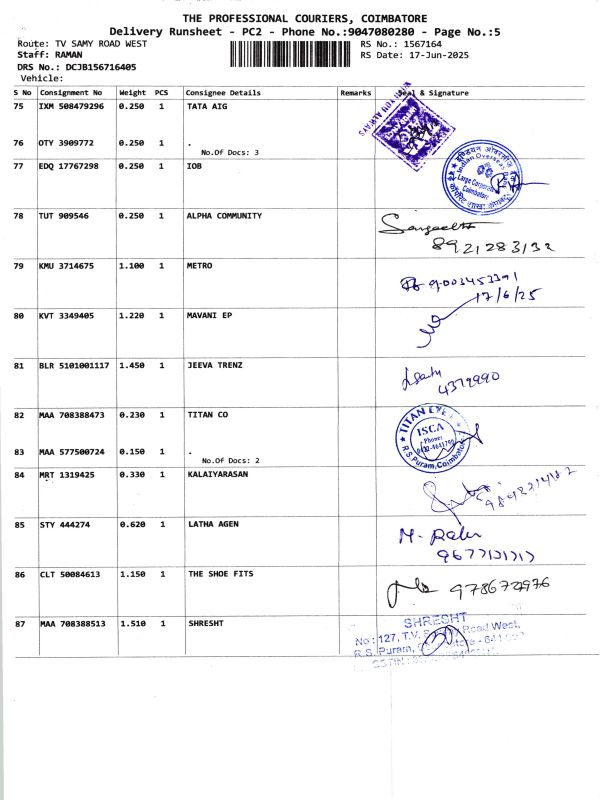 THE PROFESSIONAL COURIERS, COIMBATORE
Delivery Runsheet - PC2 - Phone No.:9047080280 - Page No.:5
Route: TV SAMY ROAD WEST RS No.: 1567164
Staff: RAMAN RS Date: 17-Jun-2025
DRS No.: DCJB156716405
Vehicle:
S No Consignment No Weight PCS Consignee Details Remarks Seal & Signature
75 IXM 508479296 0.250 1 TATA AIG
WITH YOU ALWAYS
76 OTY 3909772 0.250 1 .
No.Of Docs: 3
77 EDQ 17767298 0.250 1 IOB
Indian Overseas
Large Corporate
Coimbatore
78 TUT 909546 0.250 1 ALPHA COMMUNITY
8921283132
79 KMU 3714675 1.100 1 METRO
17/6/25
80 KVT 3349405 1.220 1 MAVANI EP
81 BLR 5101001117 1.450 1 JEEVA TRENZ
4379990
82 MAA 708388473 0.230 1 TITAN CO
TITAN EYE
ISCA
Phone:
R.S Puram, Coimbatore
83 MAA 577500724 0.150 1 .
No.Of Docs: 2
84 MRT 1319425 0.330 1 KALAIYARASAN
85 STY 444274 0.620 1 LATHA AGEN
86 CLT 50084613 1.150 1 THE SHOE FITS
87 MAA 708388513 1.510 1 SHRESHT
SHRESHT
No: 127, T.V. Road West,
R.S. Puram,
GSTIN: